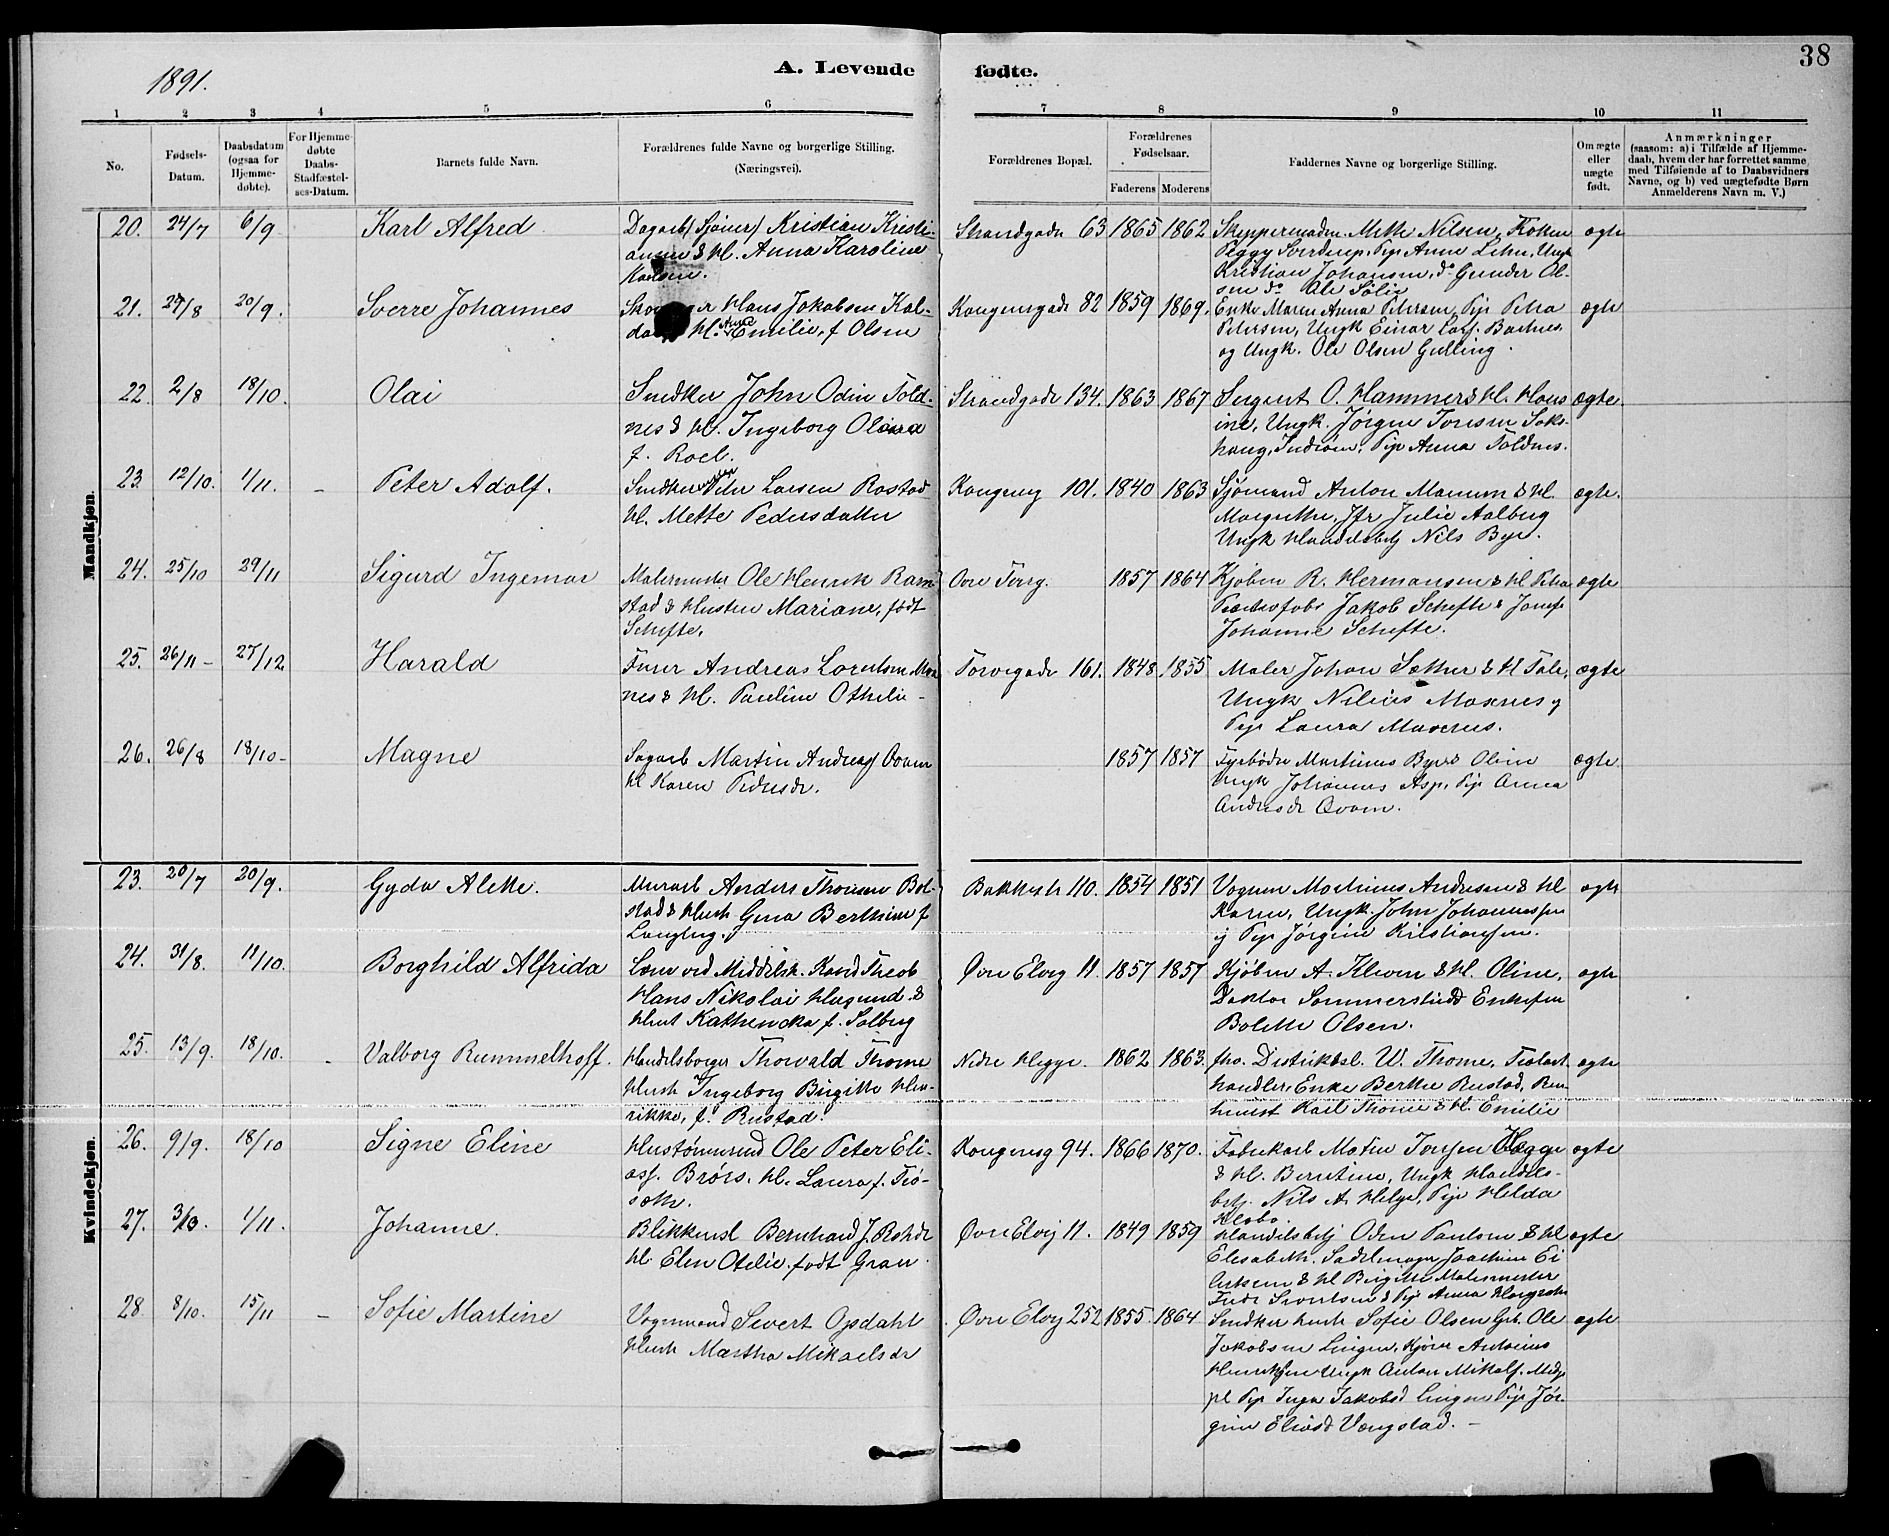 1891.
A. Levende fødte.
38
1 2 3 4 5 6 7 8 9 10 11
No.
Fødsels-Datum.
Daabsdatum (ogsaa for Hjemme-døbte).
For Hjemme-døbte Daabs-Stadfæstel-ses-Datum.
Barnets fulde Navn.
Forældrenes fulde Navne og borgerlige Stilling. (Næringsvei).
Forældrenes Bopæl.
Forældrenes Fødselsaar.
Faderens Moderens
Faddernes Navne og borgerlige Stilling.
Om ægte eller uægte født.
Anmærkninger (saasom: a) i Tilfælde af Hjemme-daab, hvem der har forrettet samme, med Tilføiende af to Daabsvidners Navne, og b) ved uægtefødte Børn Anmelderens Navn m. V.)
Mandkjøn.
20. 24/7 6/9 Karl Alfred
Dagarb (Sjöner) Kristian Kristi-
ansen & H. Anna Karoline
Karlsen.
Strandgade 63 1865 1862
Skippermadm. Mette Nilsen, Frøken
Peggy Sverdrup, Pige Anna Lehn, Ungk
Kristian Johansen, do Gunder Ol-
sen do Ole Sølie
ægte
21. 27/8 20/9. Sverre Johannes
Hans Jakobsen Kal-
H. Anna Emilie, f Olsen
Kongensgade 82 1859 1869.
Enke Maren Anna Petersen, Pige Petra
Petersen, Ungk Einar
og Ungk. Ole Olsen Gulling.
ægte
22. 2/8 18/10. Olai
Snedker John Odin Fold-
nes & H. Ingeborg Olava
f. Roel.
Strandgade 134. 1863 1867
Sergent O. Hammer & H. Hans
ine, Ungk. Jörgen Tonesen Saks-
haug, Inderøen, Pige Anna Foldnes.
ægte.
23 12/10. 1/11. - Peter Adolf.
Snedker Peter Larsen Rostad
H. Mette Pedersdatter
Kongensg 101. 1840 1863
Sjømand Anton Monsen & H.
Margrethe, Jfr Julie Aalberg
Ungk Handelsbetj Nils Bye.
ægte.
24. 25/10 29/11 Sigurd Ingemar
Malermester Ole Henrik Ram
stad & Hustru Mariane, født
Schefte.
Övre Torvg. 1857 1864
Kjøbm R. Hermansen & H Petra
Jakob Schefte & Jomfr
Johanne Schefte.
ægte
25. 26/11 - 27/12 Harald
Furer Andreas Lorentsen
nes & H. Pauline Othelie -
Torvegade 161. 1848 1855
Maler Johan Sæther & H Tale,
Ungk Nilius Moxnes og
Pige Laura
ægte
26. 26/8 18/10 - Magne
Sagarb Martin Andreas Qvam
H Karen Pedersdr.
1857 1857
Fyrbøder Martinus Bye & Oline
Ungk Johannes Asp, Pige Anna
Andersdr Qvam.
ægte
Kvindekjøn.
23. 20/7 20/9. Gyda Alette.
Murarb Anders Thomsen Bol-
stad & Hustr Gina Berthine f
Langberg.
Bakkestr 110. 1854 1851
Vognm Martinus Andersen & H
Karen, Ungk. John Johannessen
og Pige Jörgine Kristiansen.
ægte
24. 31/8. 11/10. Borghild Alfrida
Lærer ved Middelsk. Kand Theol
Hans Nikolai Høgund &
Hust Kathincka f. Solberg
Øvre Elveg 11. 1857 1857
Kjøbm A. Klüwer & H. Oline,
Doktor Sommerschildt Enkefru
Bolette Olsen.
ægte
25. 13/9. 18/10. - Valborg Rummelhoff.
Handelsborger Thorvald Thorne
Hustr Ingeborg Birgitte Hen-
rikke, f. Rustad.
Nedre Hegge. 1862 1863.
fhv. Distriktsl. W. Thorne, Trælast
handler, Enke Berthe Rustad,
Karl Thorne & H. Emilie
ægte
26. 9/9. 18/10 Signe Eline
Hustømmermd Ole Peter Eli-
ass. Brørs. H. Laura f. Frö-
sæth.
Kongensg 94. 1866 1870.
Fabrikarb Martin Torssen Hegge
& H. Berntine, Ungk Handels-
betj. Nils A. Helge, Pige Hilda
Hlobo.
ægte
27. 3/10. 1/11. Johanne.
Blikkensl Bernhard J. Rohde
H. Elen Otelie, født Gran.
Øvre Elveg 11. 1849 1859
Handelsbetj Oden Paulsen & H
Elisabeth. Sadelmager Joachim Ei
lertsen & H Birgitte Malermester
Fredr Sivertsen & Pige Anna
ægte
28. 8/10. 15/11 - Sofie Martine
Vognmand Sivert Opdahl
Hustr Martha Mikaelsdr
Øvre Elveg 252 1855. 1864
Snedker hustr Sofie Olsen Grb. Ole
Jakobsen Lingen, Kjører Antonius
Henriksen Ungk Anton Mikals.
Pige Inga Jakobsd Lingen Pige Jör-
gine Eliasd Vangstad. -
ægte